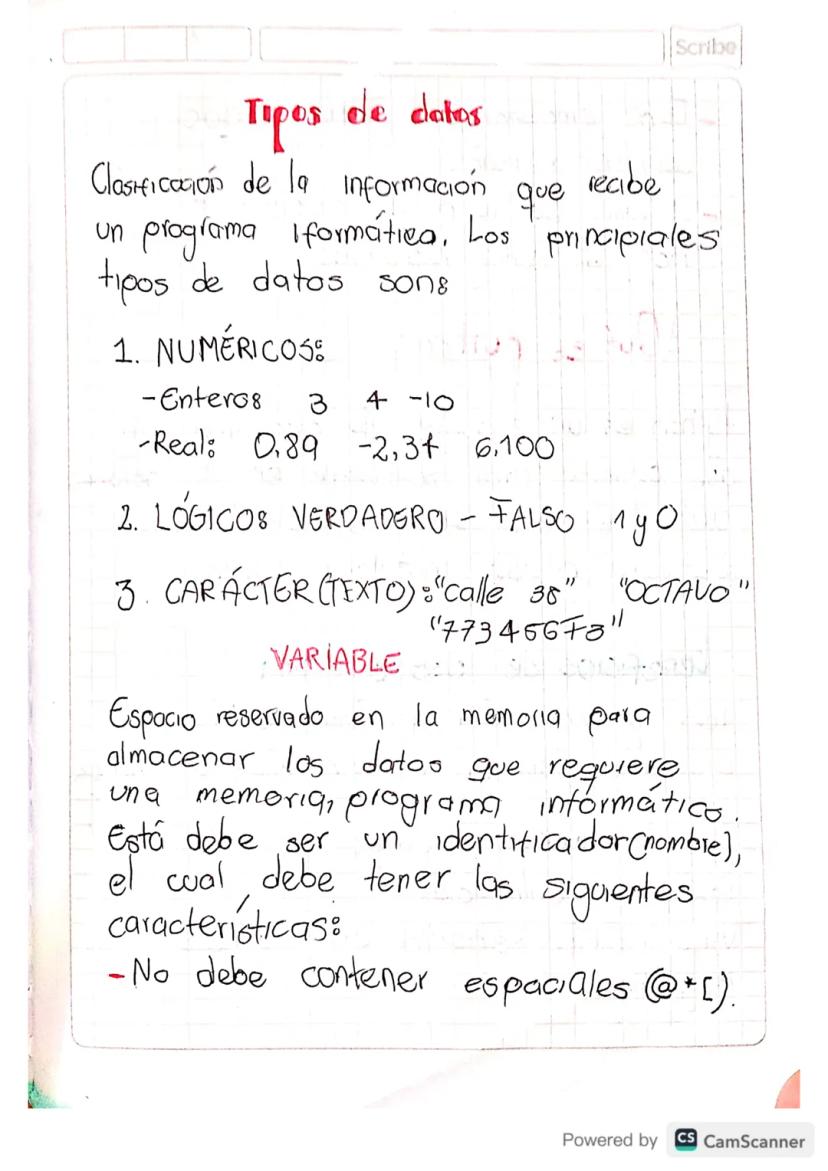 Scribe
Tipos de datos
Clasificación de la información que recibe
un programa iformático. Los principiales
tipos de datos son:
1. NUMÉRICOS:
-Enteros 3 4 -10
-Real: 0,89 -2,34 6,100
2. LÓGICOS VERDADERO - FALSO 1 y 0
3. CARÁCTER (TEXTO): "calle 38" "OCTAVO"
"77345678"
VARIABLE
Espacio reservado en la memoria para
almacenar los datos que requiere
una memoria, programa informático.
Está debe ser un identificador (nombre),
el cual debe tener las siguientes
características:
- No debe contener espaciales @*[).
Powered by CS CamScanner